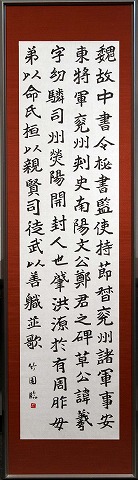 魏故中書令秘書監使持節督兗州諸軍事安
東將軍兗州刺史南陽文公鄭君之碑草公諱羲
字幼驎司州熒陽開封人也肇洪源於有周胙母
弟以命氏桓以親賢司徒武以善職並歌
竹園臨